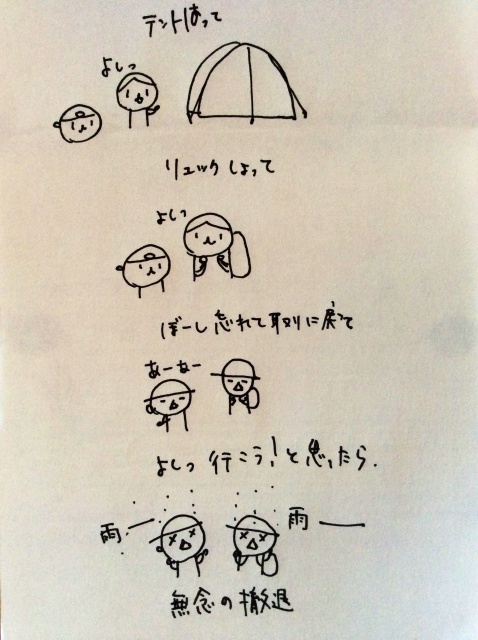 テントはって
よしっ
リュックしょって
よしっ
ぼーし忘れて取りに戻って
あーねー
よしっ 行こう!と思ったら.
雨ー 雨ー
無念の撤退